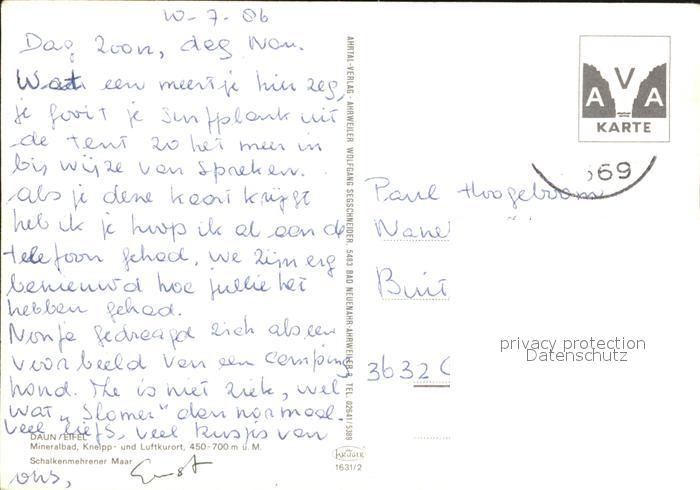 10-7-86
Dag Zoon, dag Nan.
Wat een meertje hier zeg,
je gooit je surfplank uit
de tent zo het meer in
bij wijze van spreken.
Als je deze kaart krijgt
heb ik je hoop ik al aan de
telefoon gehad, we zijn erg
benieuwd hoe jullie het
hebben gehad.
Nonja gedraagd zich als een
voorbeeld van een camping
hond. Ze is niet ziek, wel
wat "slomer" dan normaal.
Veel liefs, veel kusjes van
ons,
Ernst
DAUN / EIFEL
Mineralbad, Kneipp- und Luftkurort, 450-700 m ü. M.
Schalkenmehrener Maar
AHRTAL-VERLAG · AHRWEILER WOLFGANG SEGSCHNEIDER, 5483 BAD NEUENAHR-AHRWEILER TEL. 02641/5389
KRÜGER
1631/2
AVA
KARTE
69
Paul Hoogeboom
Nanet
Buit
3632
privacy protection
Datenschutz